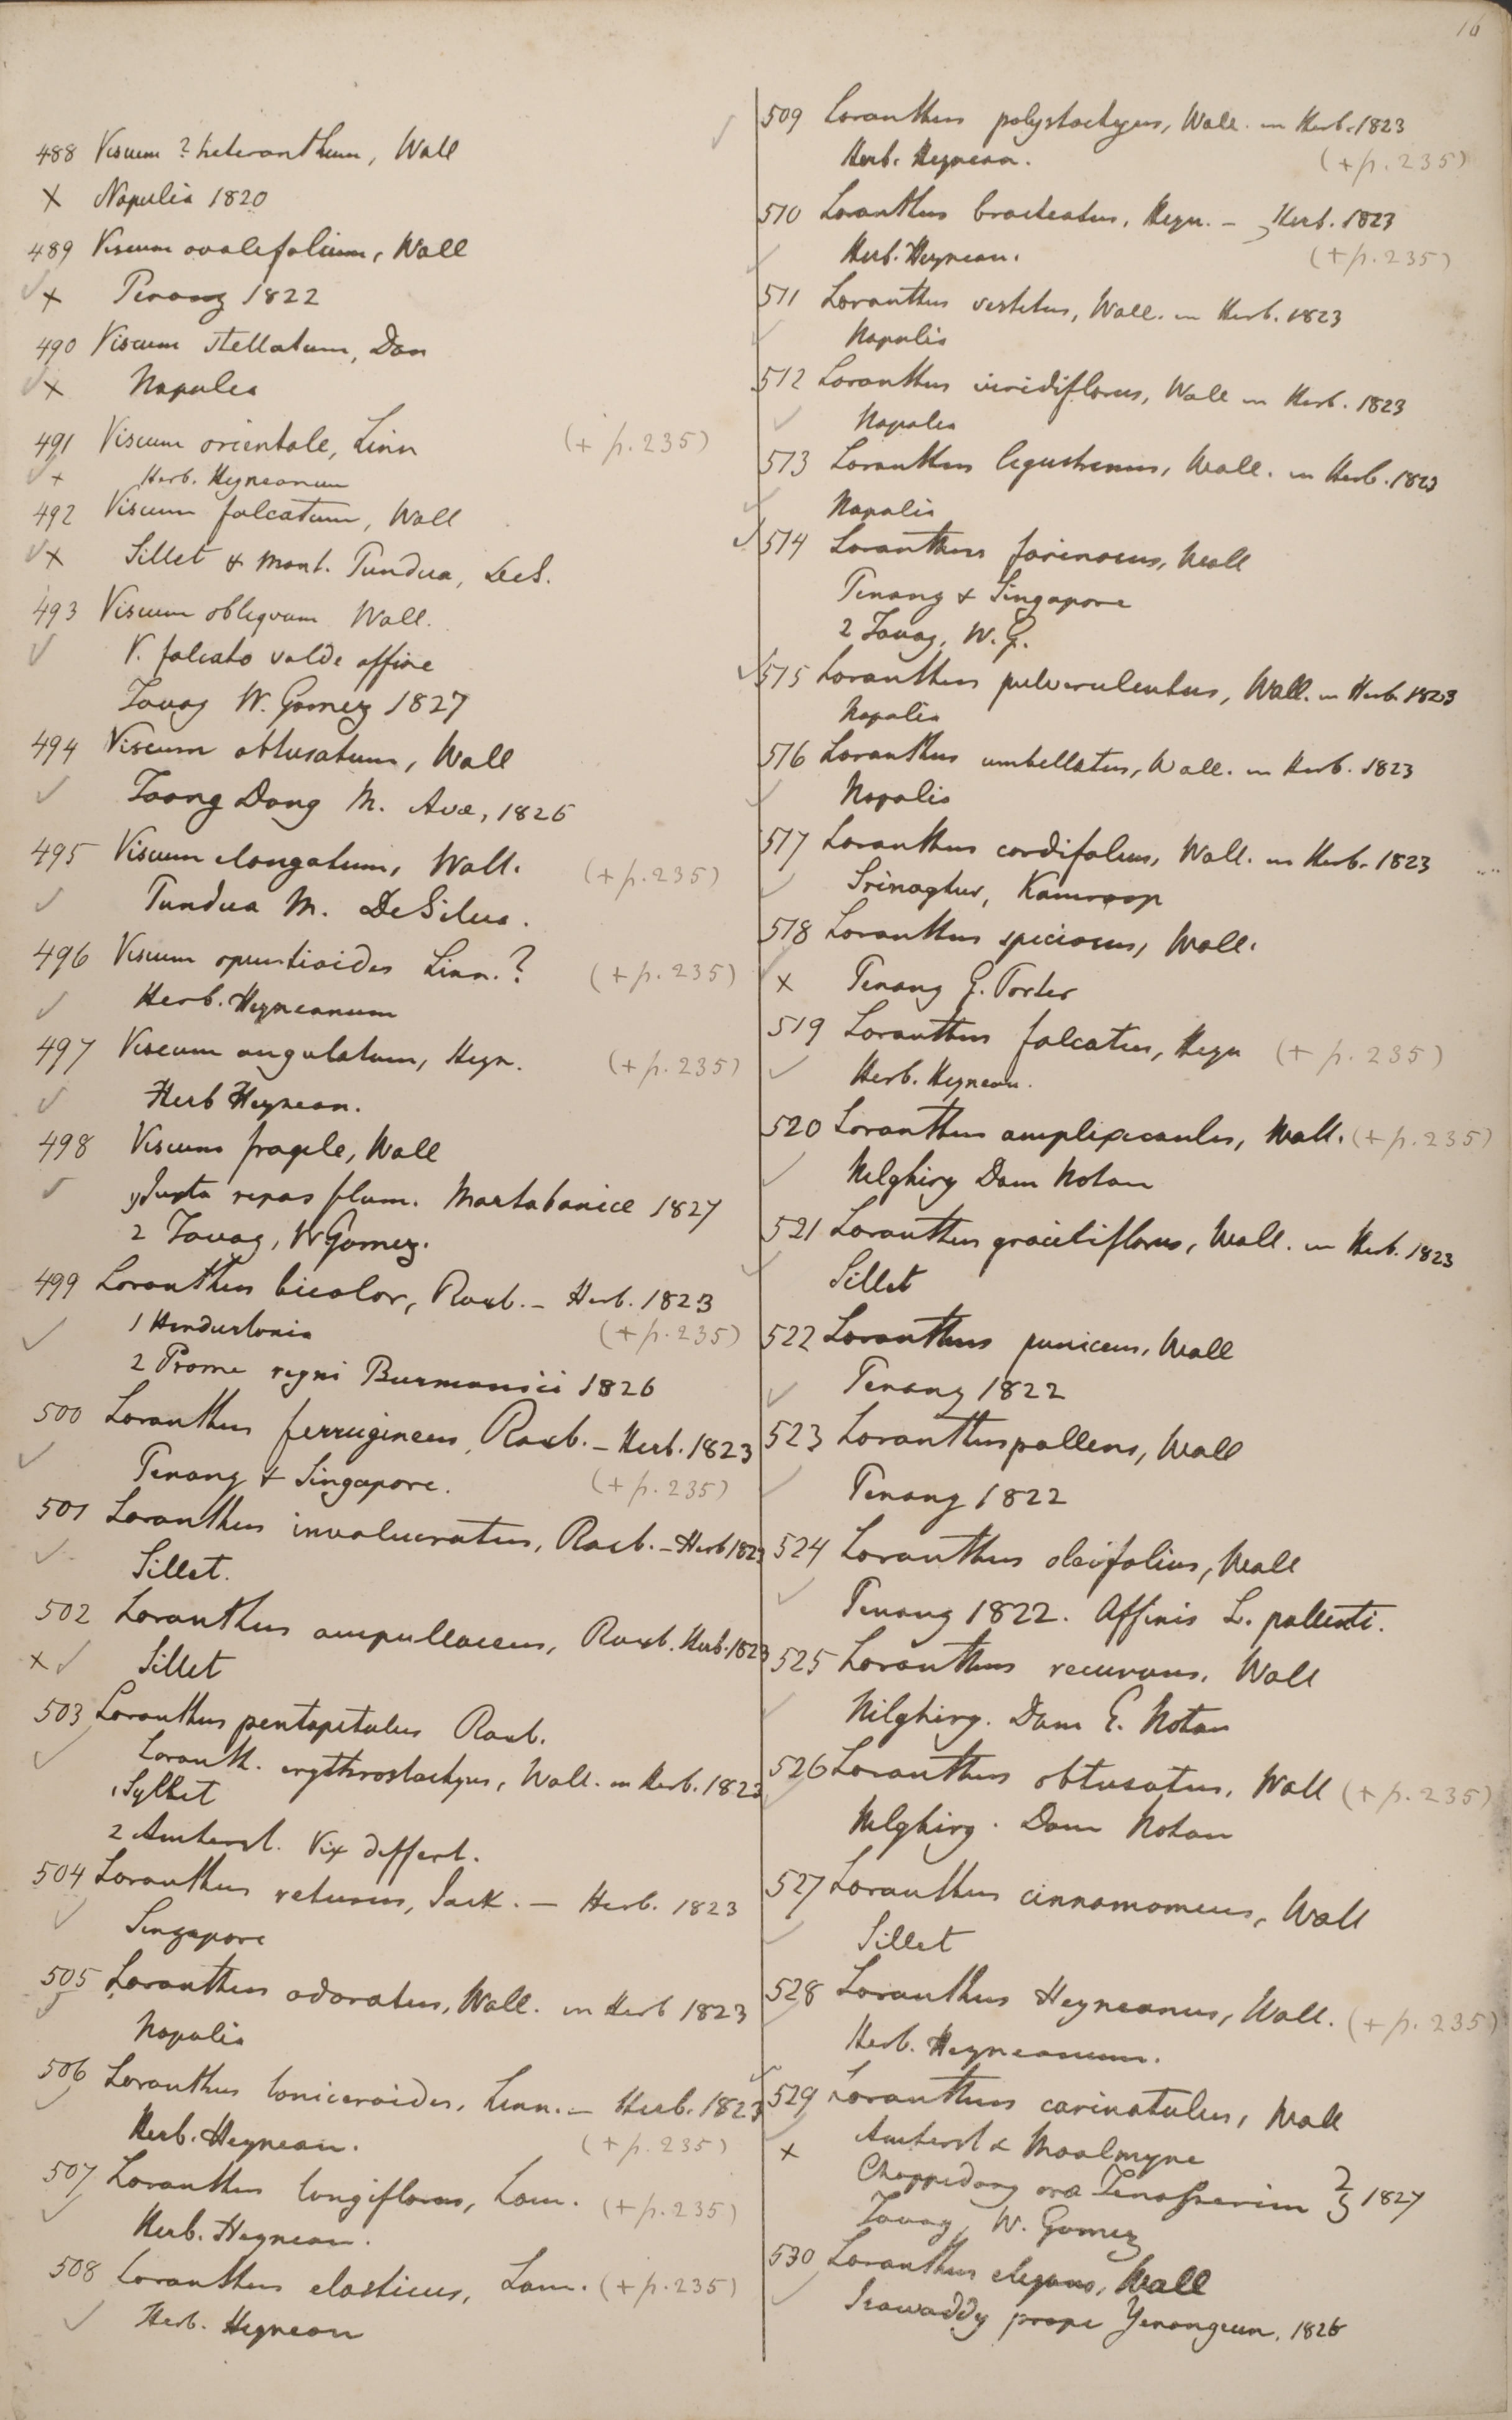 16
488 Viscum ? heteranthum, Wall
X Napalia 1820
489 Viscum ovalifolium, Wall
X Penang 1822
490 Viscum stellatum, Don
X Napalia
491 Viscum orientale, Linn (+ p. 235)
+ Herb. Heyneanum
492 Viscum falcatum, Wall
X Sillet & mont. Pundua, DeS.
493 Viscum obliquum Wall.
V. falcato valde affine
Tavoy W. Gomez 1827
494 Viscum obtusatum, Wall
Taong Dong M. Avæ, 1826
495 Viscum elongatum, Wall. (+ p. 235)
Pundua M. DeSilva.
496 Viscum opuntioides Linn. ? (+ p. 235)
Herb. Heyneanum
497 Viscum angulatum, Heyn. (+ p. 235)
Herb Heynean.
498 Viscum fragile, Wall
1 Juxta ripas flum. Martabanice 1827
2 Tavoy, W Gomez.
499 Loranthus bicolor, Roxb. – Herb. 1823
1 Hindustania (+ p. 235)
2 Prome regni Burmanici 1826
500 Loranthus ferrugineus, Roxb. – Herb. 1823
Penang & Singapore. (+ p. 235)
501 Loranthus involucratus, Roxb. – Herb 1823
Sillet.
502 Loranthus ampullaceus, Roxb. Herb. 1823
X Sillet
503 Loranthus pentapetalus Roxb.
Loranth. erythrostachyus, Wall. in Herb. 1823
1 Sylhet
2 Amherst. Vix differt.
504 Loranthus retusus, Jack. – Herb. 1823
Singapore
505 Loranthus odoratus, Wall. in Herb 1823
Napalia
506 Loranthus loniceroides, Linn. – Herb. 1823
Herb. Heynean. (+ p. 235)
507 Loranthus longiflorus, Lam. (+ p. 235)
Herb. Heynean.
508 Loranthus elasticus, Lam. (+ p. 235)
Herb. Heynean
509 Loranthus polystachyus, Wall. in Herb. 1823
Herb. Heynean. (+ p. 235)
510 Loranthus bracteatus, Heyn. – Herb. 1823
Herb. Heynean. (+ p. 235)
511 Loranthus vestitus, Wall. in Herb. 1823
Napalia
512 Loranthus viridiflorus, Wall in Herb. 1823
Napalia
513 Loranthus ligustrinus, Wall. in Herb. 1823
Napalia
514 Loranthus farinosus, Wall
Penang & Singapore
2 Tavoy, W. G.
515 Loranthus pulverulentus, Wall. in Herb. 1823
Napalia
516 Loranthus umbellatus, Wall. in Herb. 1823
Napalia
517 Loranthus cordifolius, Wall. in Herb. 1823
Srinaghur, Kamroop
518 Loranthus speciosus, Wall.
X Penang G. Porter
519 Loranthus falcatus, Heyn (+ p. 235)
Herb. Heynean.
520 Loranthus amplexicaulis, Wall. (+ p. 235)
Nilghiry Dam Notan
521 Loranthus graciliflorus, Wall. in Herb. 1823
Sillet
522 Loranthus puniceus, Wall
Penang 1822
523 Loranthus pallens, Wall
Penang 1822
524 Loranthus oleifolius, Wall
Penang 1822. Affinis L. pallenti.
525 Loranthus recurvus, Wall
Nilghiry. Dam E. Notan
526 Loranthus obtusatus, Wall (+ p. 235)
Nilghiry. Dam Notan
527 Loranthus cinnamomeus, Wall
Sillet
528 Loranthus Heyneanus, Wall. (+ p. 235)
Herb. Heyneanum.
529 Loranthus carinatulus, Wall
X Amherst & Moalmyne
Chappedong oræ Tenasserim 2 3 1827
Tavoy, W. Gomez
530 Loranthus elegans, Wall
Irawaddy prope Yenangeun, 1826